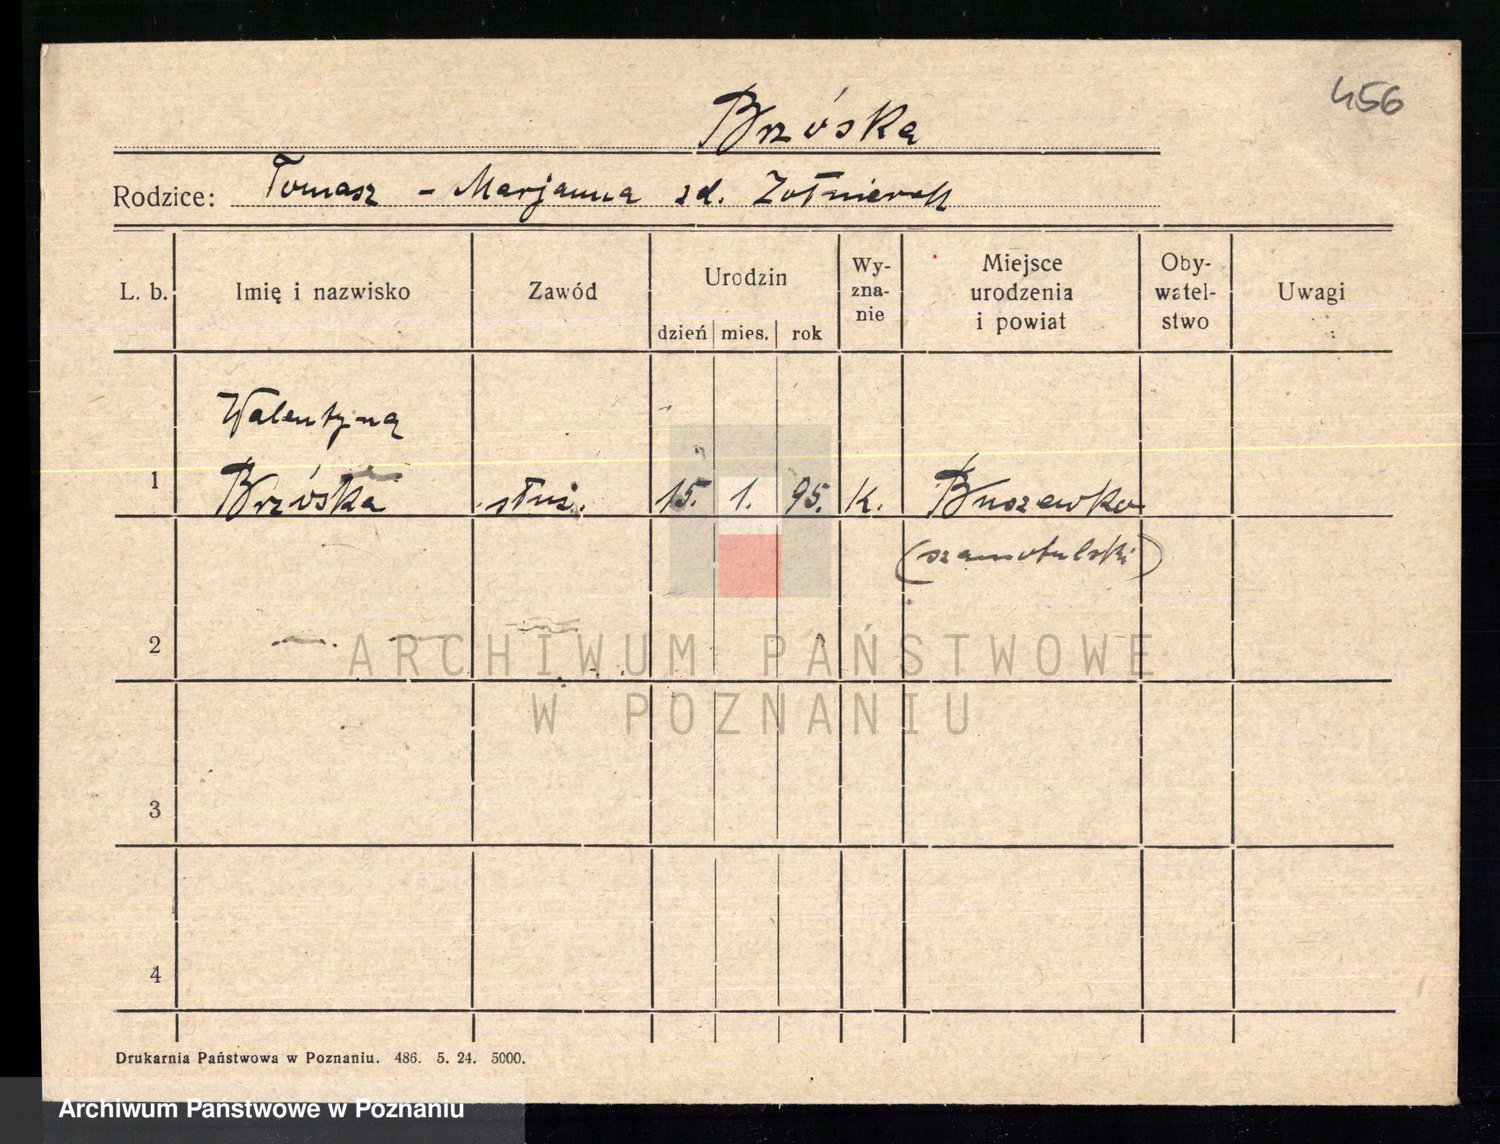 456
Brzóska
Rodzice: Tomasz - Marjanna zd. Żołnierek
L. b. Imię i nazwisko Zawód Urodzin Wy-zna-nie Miejsce urodzenia i powiat Oby-watel-stwo Uwagi
dzień mies. rok
Walentyna
1 Brzóska służ. 15. 1. 95. k. Buszewko
(szamotulski)
2
ARCHIWUM PAŃSTWOWE
W POZNANIU
3
4
Drukarnia Państwowa w Poznaniu. 486. 5. 24. 5000.
Archiwum Państwowe w Poznaniu